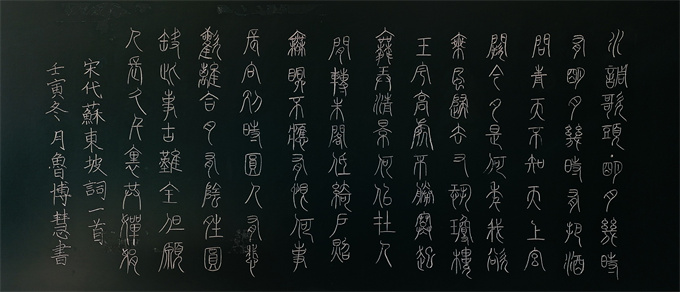 水調歌頭·明月幾時
有明月幾時有把酒
問青天不知天上宮
闕今夕是何年我欲
乘風歸去又恐瓊樓
玉宇高處不勝寒起
舞弄清影何似在人
間轉朱閣低綺戶照
無眠不應有恨何事
長向別時圓人有悲
歡離合月有陰晴圓
缺此事古難全但願
人長久千里共嬋娟
宋代蘇東坡詞一首
壬寅冬月魯博慧書